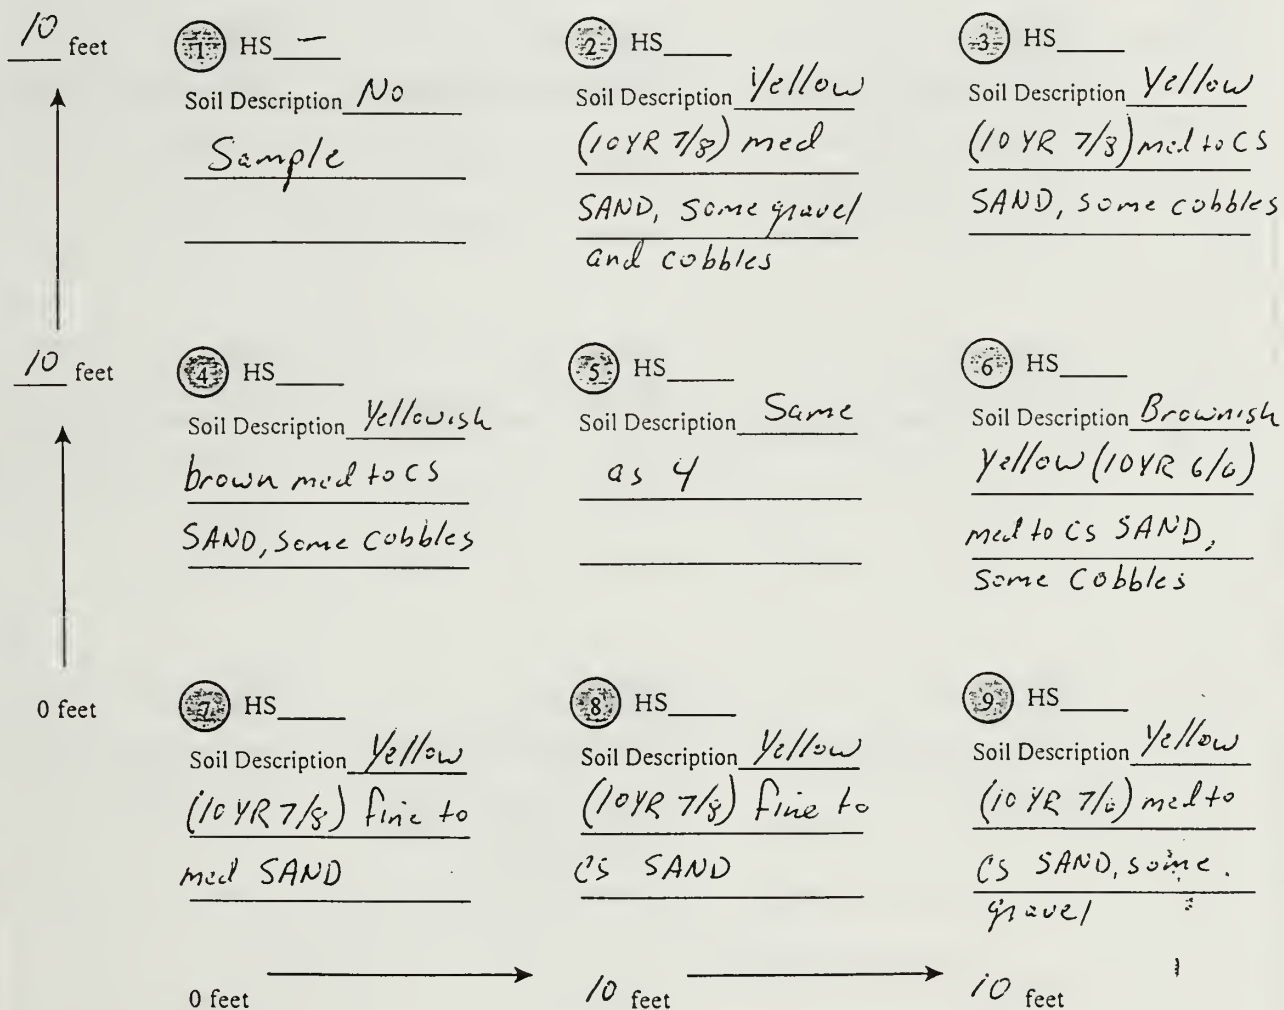 10 feet
1 HS —
Soil Description No
Sample
2 HS
Soil Description Yellow
(10YR 7/8) med
SAND, some gravel
and cobbles
3 HS
Soil Description Yellow
(10 YR 7/8) med to CS
SAND, some cobbles
10 feet
4 HS
Soil Description Yellowish
brown med to CS
SAND, some cobbles
5 HS
Soil Description Same
as 4
6 HS
Soil Description Brownish
Yellow (10YR 6/6)
med to CS SAND,
Some Cobbles
0 feet
7 HS
Soil Description Yellow
(10 YR 7/8) fine to
med SAND
8 HS
Soil Description Yellow
(10YR 7/8) fine to
CS SAND
9 HS
Soil Description Yellow
(10 YR 7/6) med to
CS SAND, some
gravel
0 feet
10 feet
10 feet